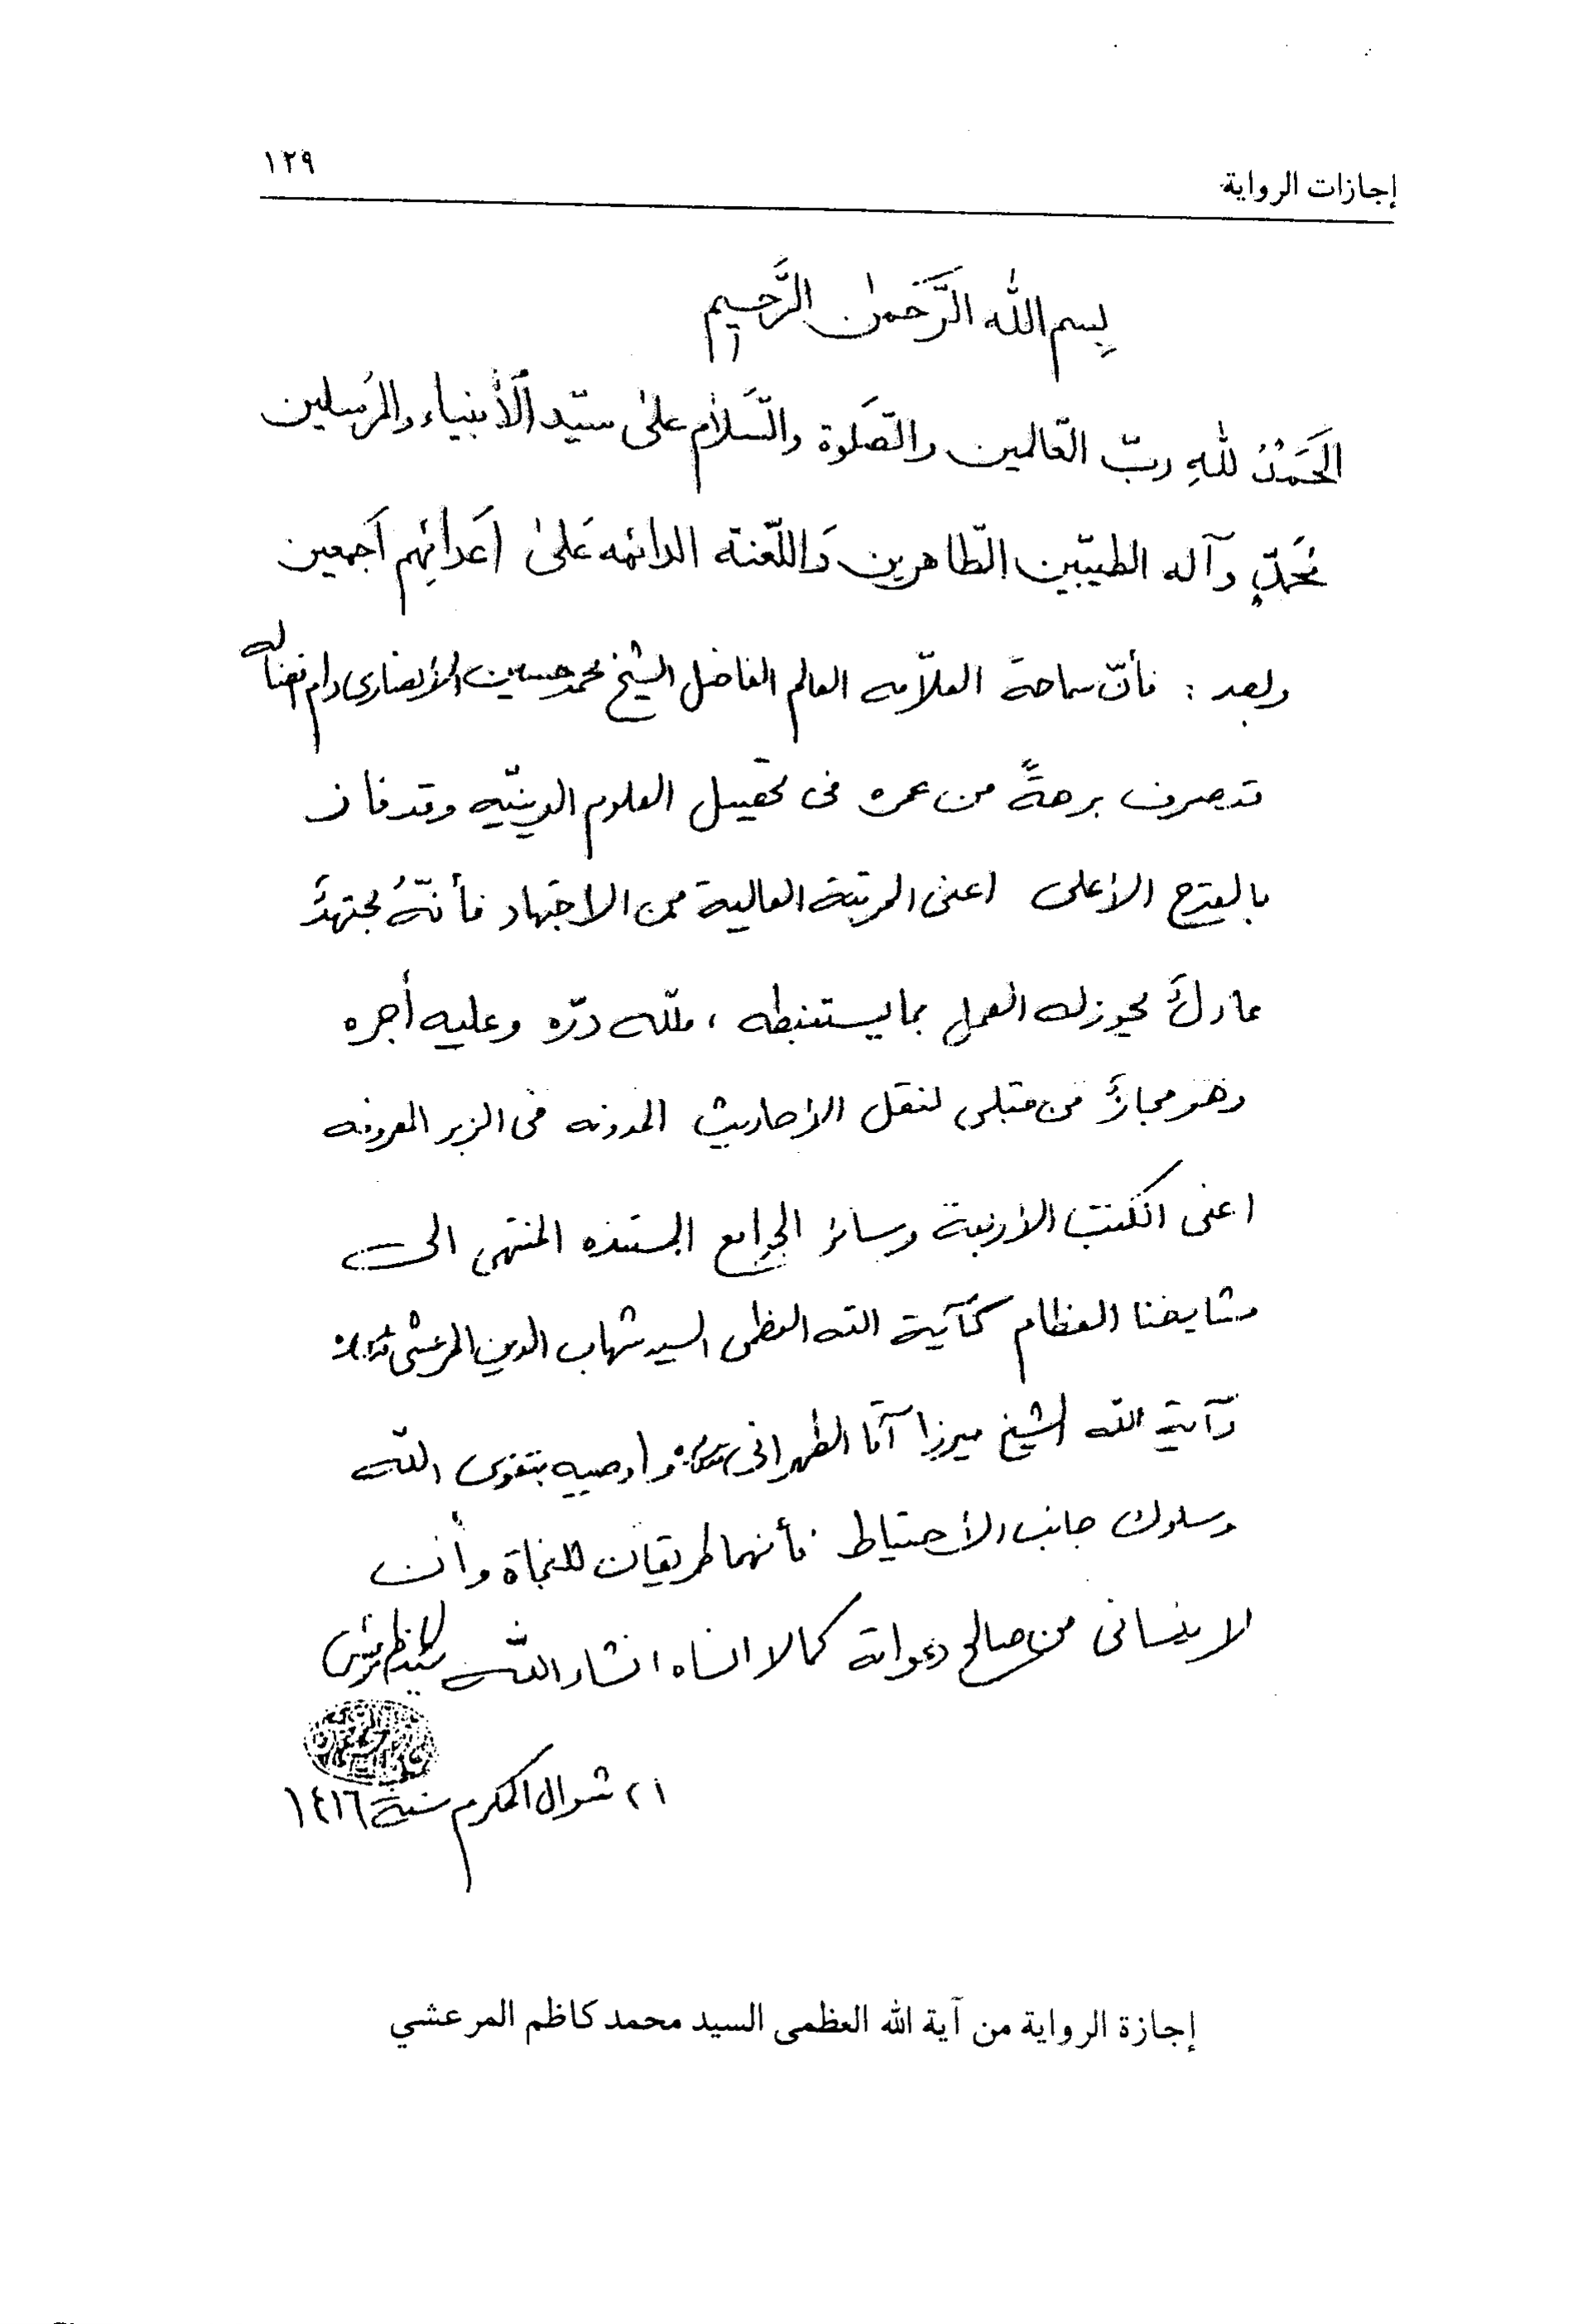 إجازات الرواية
١٢٩
بِسم الله الرَّحمٰن الرَّحيم
اَلحَمدُ للهِ ربّ العالمين والصَّلوة والسَّلام علىٰ سيّد الأنبياء والمُرسلين
محَمّدٍ وآله الطيّبين الطّاهرين وَاللّعنة الدائمه عَلىٰ اَعدائهم اَجمعين
وبعد : فأنّ سماحة العلّامه العالم الفاضل الشيخ محمد حسين الأنصارى دام افضاله
قد صرف برهةً من عمره فى تحصيل العلوم الدينيّه وقد فاز
بالقدح الأعلى اعنى المرتبة العالية من الاجتهاد فأنّهُ مجتهدٌ
عادلٌ يجوز له العمل بما يستنبطه ، فللّه درّه وعليه أجره
وهو مجازٌ من قبلى لنقل الأحاديث المدونه فى الزبر المعروفه
اعنى الكتب الأربعة وسائر الجوامع المستنده المنتهى الى
مشايخنا العظام كآية الله العظمى السيد شهاب الدين المرعشى
وآية الله الشيخ ميرزا آقا الطهرانى واوصيه بتقوى الله
وسلوك جانب الأحتياط فأنهما طريقان للنجاة وأن
لا ينسانى من صالح دعواته كما لا انساه انشاء الله
٢١ شوال المكرم سنة ١٤١٦
إجازة الرواية من آية الله العظمى السيد محمد كاظم المرعشي